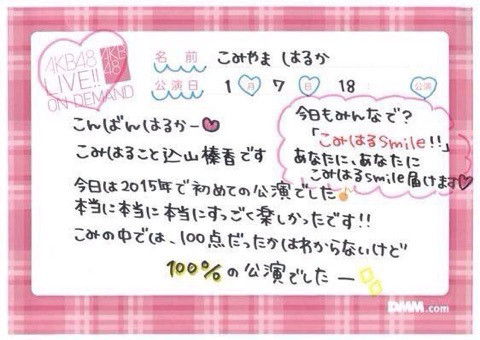 AKB48
LIVE!!
ON DEMAND
AKB
48
名前 こみやま はるか
公演日 1月 7日 18: 公演
こんばんはるかー
こみはること込山榛香です
今日もみんなで？
「こみはるSmile!!」
あなたに、あなたに
こみはるsmile届けます
今日は2015年で初めての公演でした
本当に本当に本当にすっごく楽しかったです!!
こみの中では、100点だったかはわからないけど
100%の公演でしたー
DMM.com